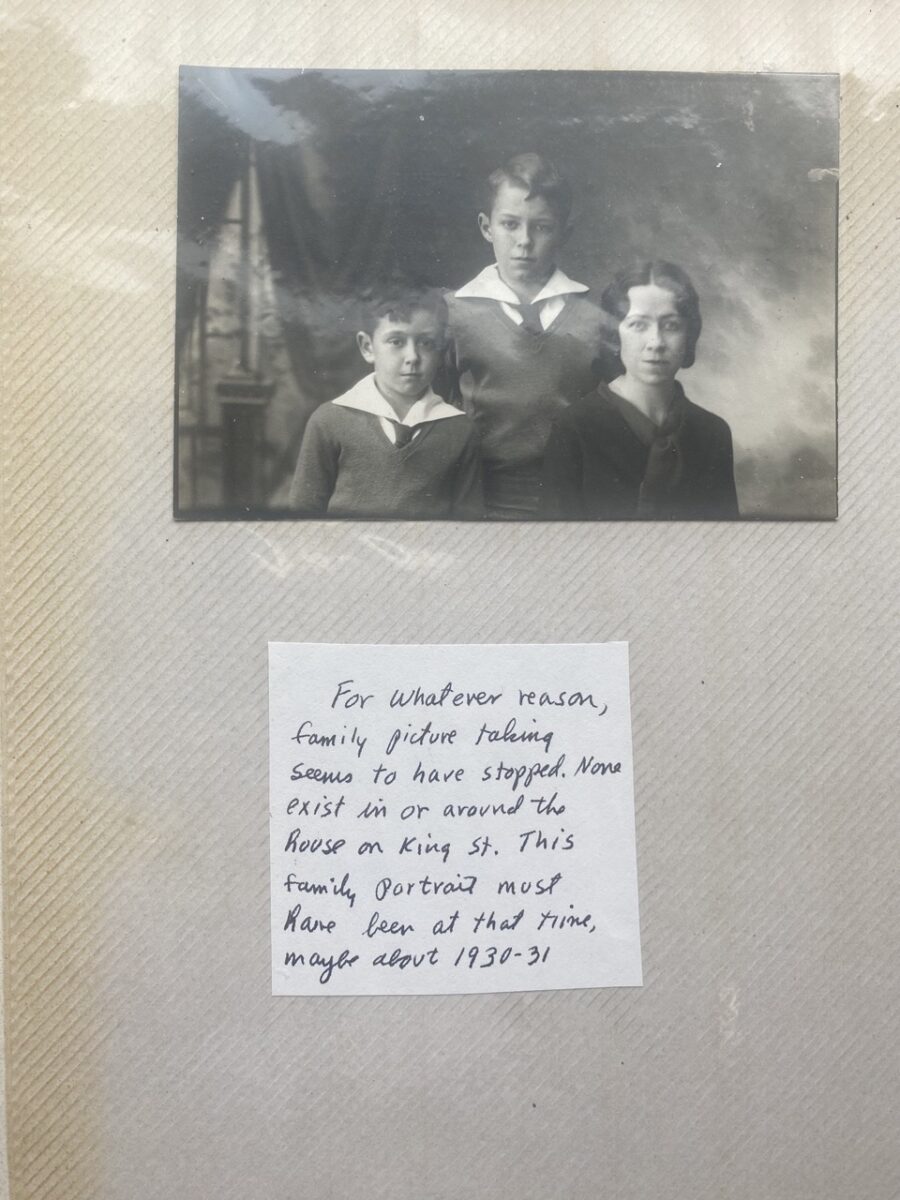 For whatever reason,
family picture taking
seems to have stopped. None
exist in or around the
house on King St. This
family portrait must
have been at that time,
maybe about 1930-31